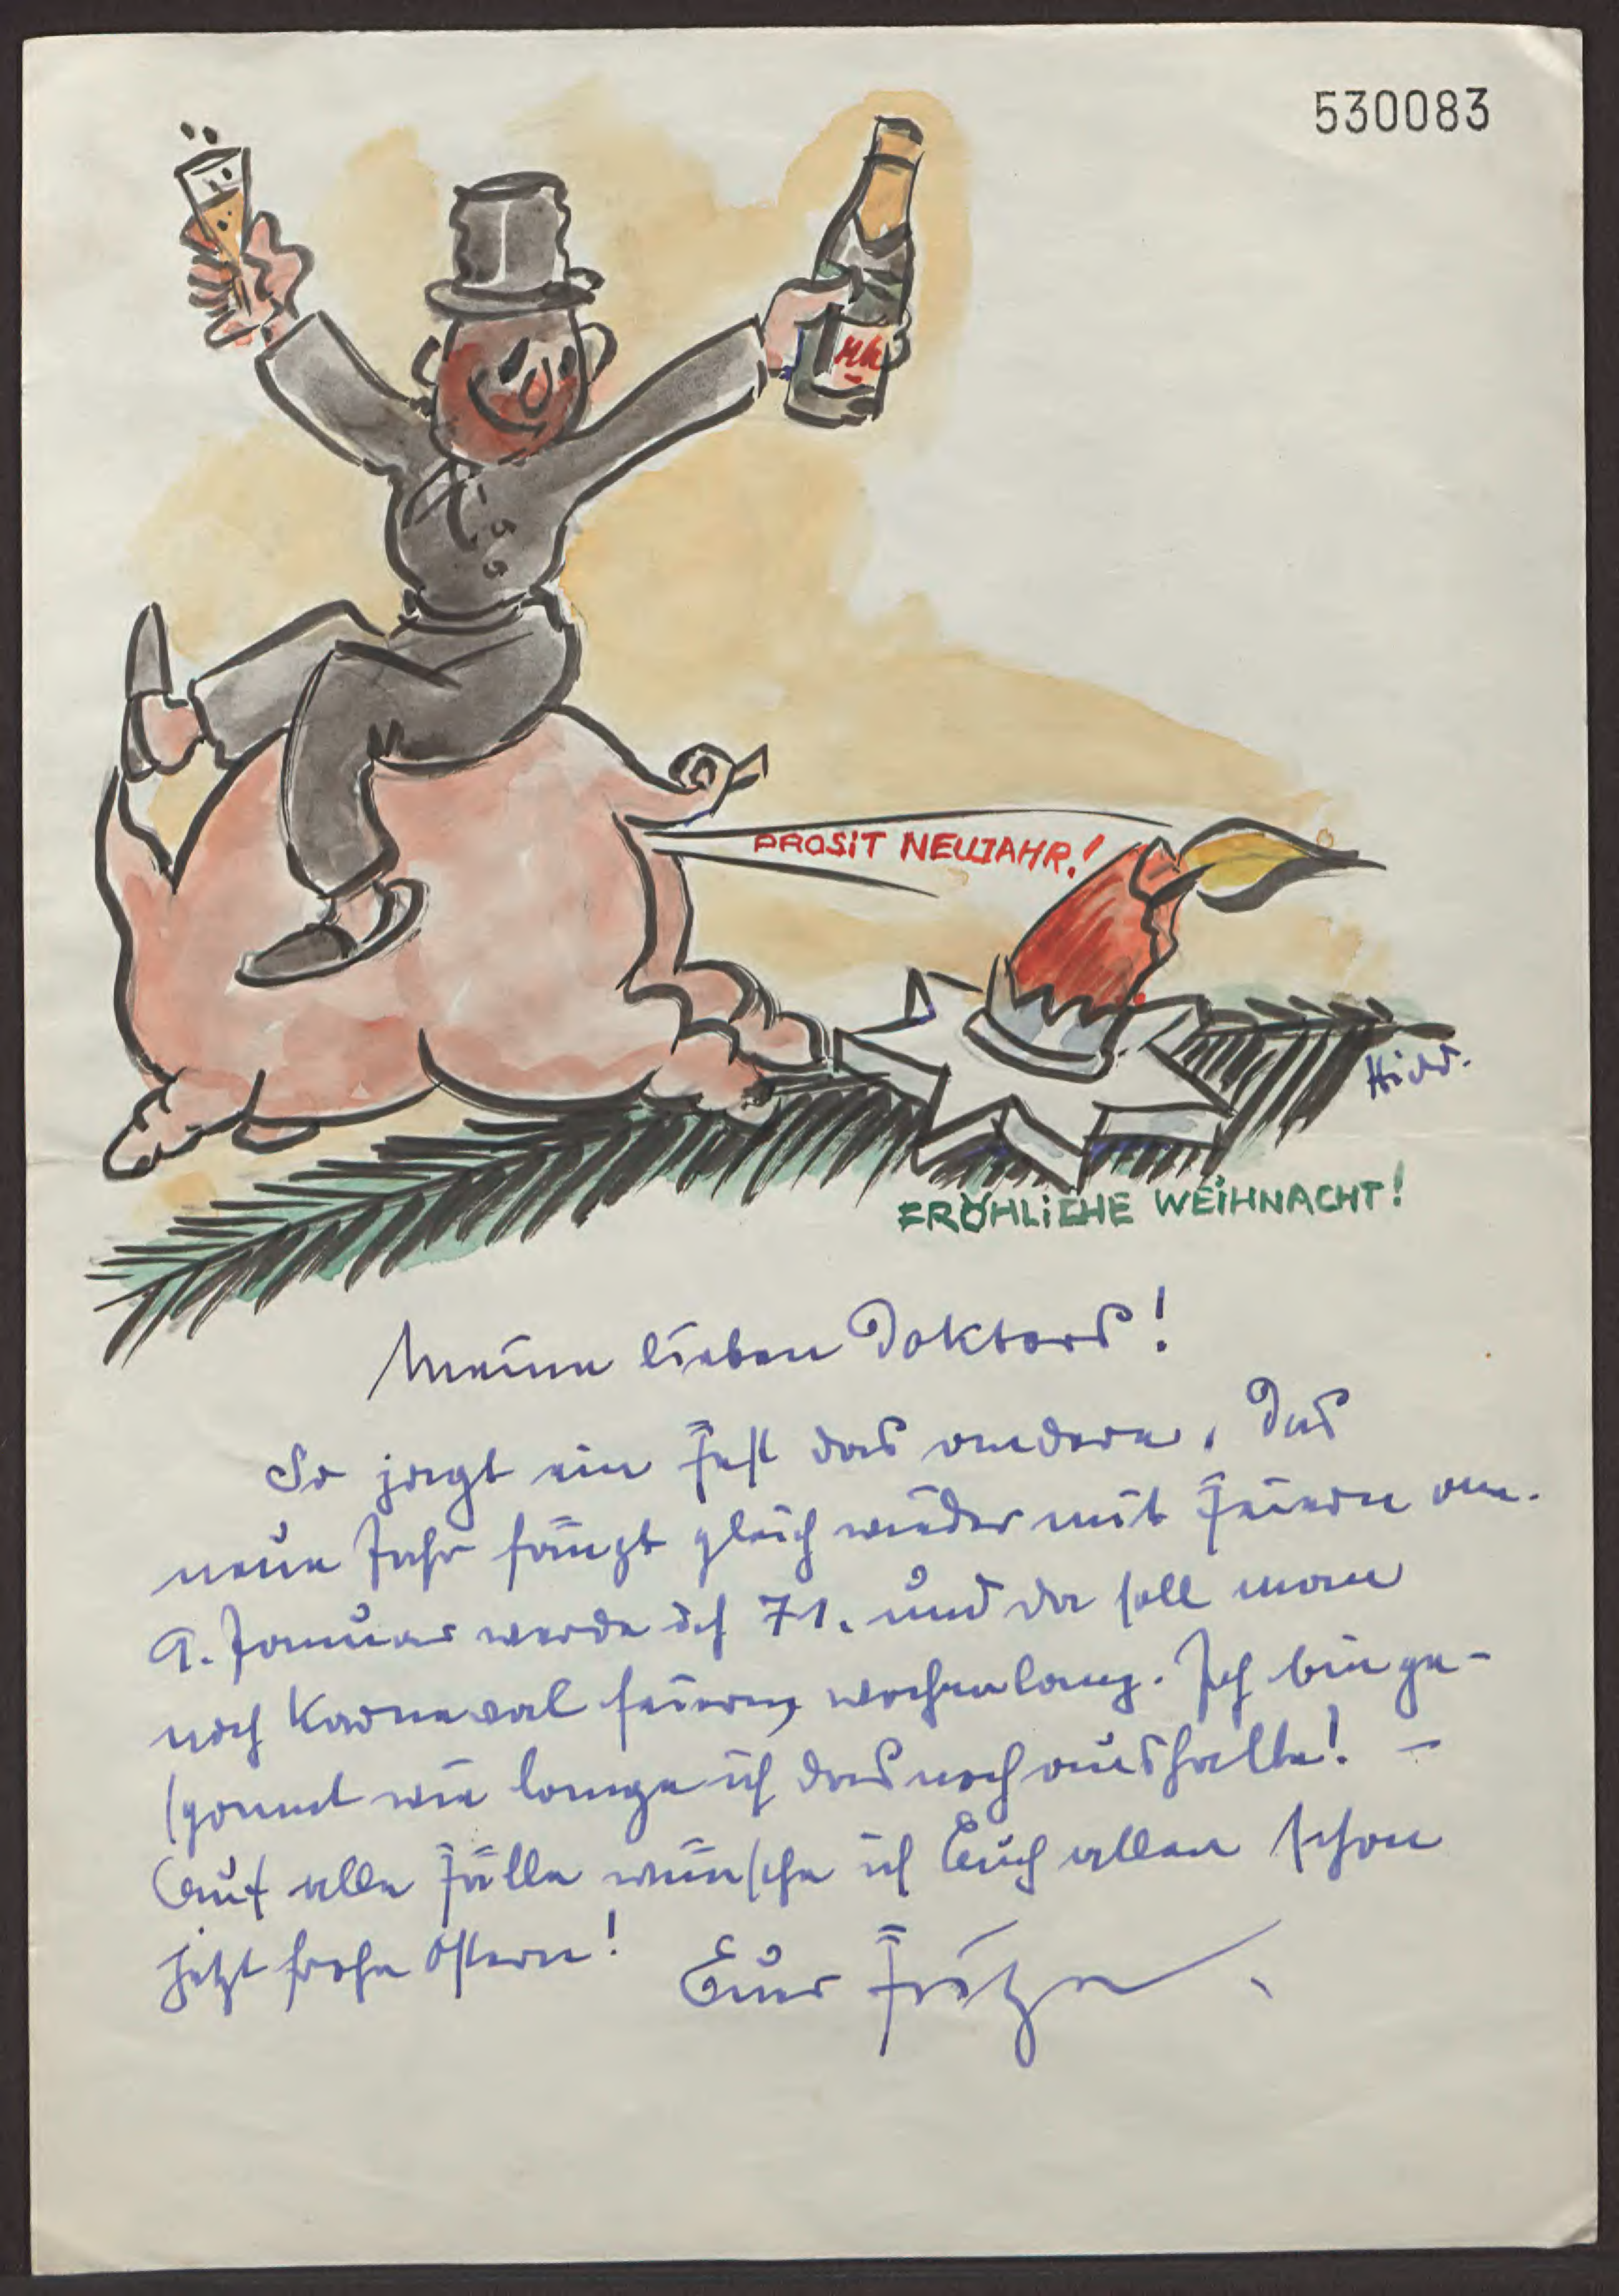 530083
PROSiT NEUJAHR!
FRÖHLiCHE WEiHNACHT!
Meine lieben Doktors!
So jagt ein Fest das andere. Das
neue Jahr fängt gleich wieder mit Feiern an.
9. Januar werde ich 71. und da soll man
noch Karneval feiern, wochenlang. Ich bin ge-
spannt wie lange ich das noch aushalte! –
Auf alle Fälle wünsche ich Euch allen schon
jetzt frohe Ostern! Euer